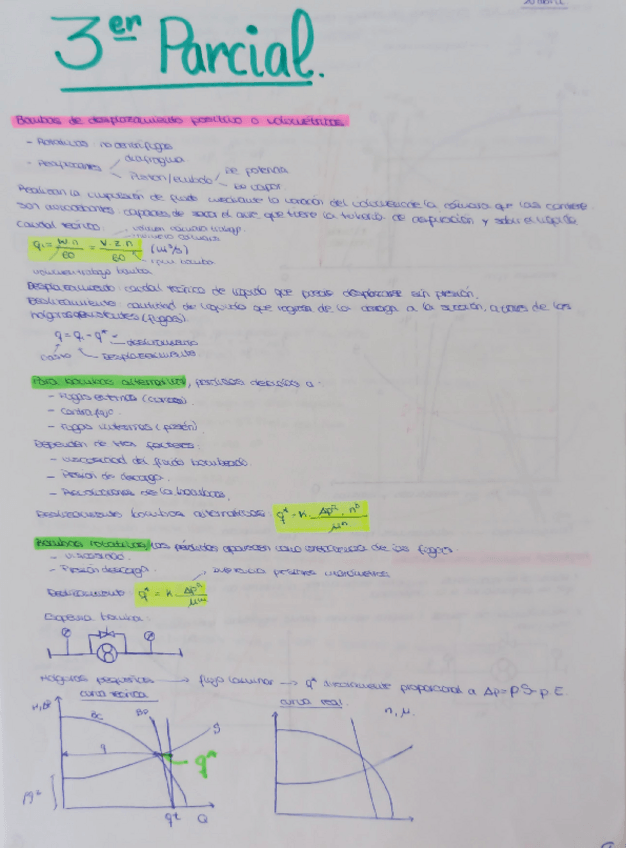 3er Parcial.
Bombas de desplazamiento positivo o volumétricas
- Rotativas: no centrífugas
- Reciprocantes diafragma
Pistón/émbolo De potencia
De vapor
Realizan la impulsión de fluido mediante la variación del volumen de la cámara que las contiene
Son autocebantes: capaces de sacar el aire que tiene la tubería de aspiración y sube el líquido.
Caudal teórico: volumen cámara trabajo
número cámaras
qt = w.n/60 = V.z.n/60 (m³/s)
rpm bomba
volumen trabajo bomba
Desplazamiento: caudal teórico de líquido que puede desplazarse sin presión.
Deslizamiento: cantidad de líquido que regresa de la descarga a la succión, a través de las
holguras existentes (fugas).
q = qt - q* deslizamiento
Desplazamiento
Para bombas alternativas, pérdidas debidas a:
- Fugas externas
- Contraflujo.
- Fugas internas (pistón)
Dependen de tres factores:
- Viscosidad del fluido bombeado
- Presión de descarga.
- Revoluciones de la bomba.
Deslizamiento bombas alternativas: q* = K. Δpᵃ . nᵇ/μⁿ
Bombas rotativas, las pérdidas aparecen como consecuencia de las fugas.
- Viscosidad
- Presión descarga. diferencia presiones manométricas
Deslizamiento q* = K. Δpᵃ/μᵐ
Esquema bomba:
Holguras pequeñas → flujo laminar → q* directamente proporcional a Δp = PS - PE.
curva teórica curva real
H, Δp BC BD g n, μ.
q q*
qt Q